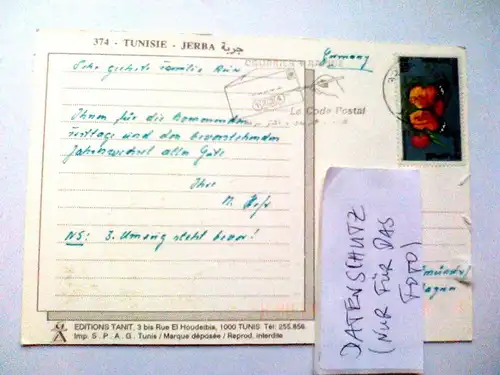 374 - TUNISIE - JERBA جربة
Germany
Sehr geehrte Familie
Le Code Postal
Ihnen für die kommenden
Festtage und den bevorstehenden
Jahreswechsel alles Gute
Ihre
NS: 3. Umzug steht bevor!
DATENSCHUTZ
(NUR FÜR DAS
FOTO)
EDITIONS TANIT, 3 bis Rue El Houdeibia, 1000 TUNIS Tél: 255.856
Imp. S . P . A . G . Tunis / Marque déposée / Reprod. interdite